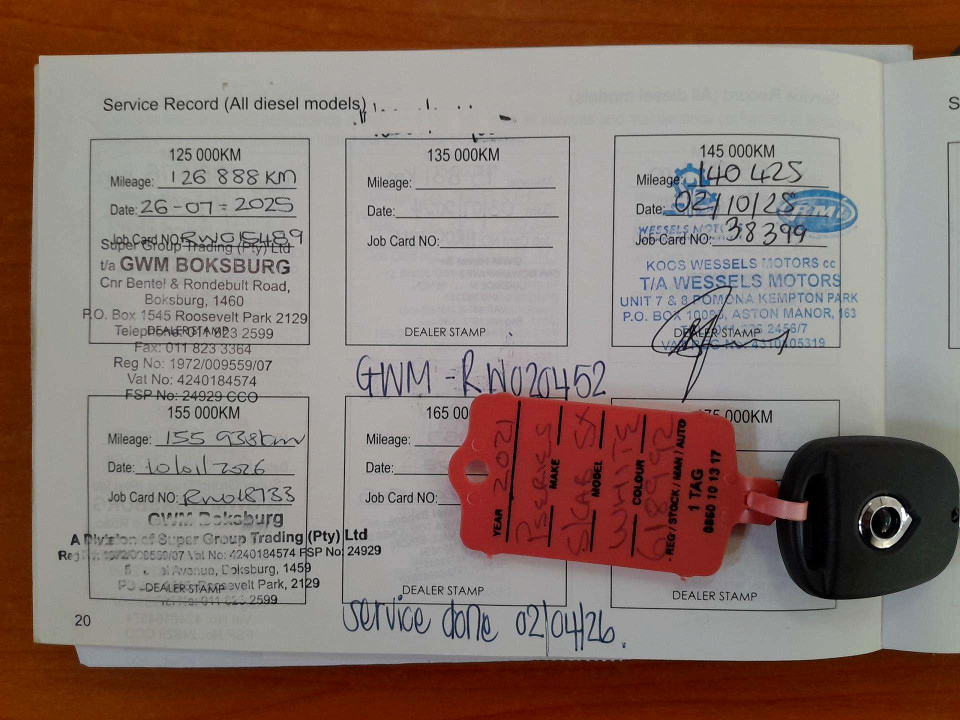 Service Record (All diesel models)
125 000KM
Mileage: 126 888KM
Date: 26-07-2025
Job Card NO: RW015489
Super Group Trading (Pty) Ltd
t/a GWM BOKSBURG
Cnr Bentel & Rondebult Road,
Boksburg, 1460
P.O. Box 1545 Roosevelt Park 2129
Telephone: 011 823 2599
DEALER STAMP
Fax: 011 823 3364
Reg No: 1972/009559/07
Vat No: 4240184574
FSP No: 24929 CCO
135 000KM
Mileage:
Date:
Job Card NO:
DEALER STAMP
145 000KM
Mileage: 140 425
Date: 02/10/25
Job Card NO: 38399
GWM
WESSELS
KOOS WESSELS MOTORS cc
T/A WESSELS MOTORS
UNIT 7 & 8 POMONA KEMPTON PARK
P.O. BOX ASTON MANOR, 163
DEALER STAMP
GWM - RW020452
155 000KM
Mileage: 155 938km
Date: 10/01/2026
Job Card NO: RW018733
GWM Boksburg
A Division of Super Group Trading (Pty) Ltd
Vat No: 4240184574 FSP No: 24929
Avenue, Boksburg, 1459
Roosevelt Park, 2129
DEALER STAMP
Tel No: 011 823 2599
165
Mileage:
Date:
Job Card NO:
DEALER STAMP
175 000KM
DEALER STAMP
YEAR 2021
PSERIES
MAKE
SKAB SX
MODEL
WHITE
COLOUR
6189192
REG / STOCK / MAN / AUTO
1 TAG
0860 10 13 17
service done 02/04/26.
20
S